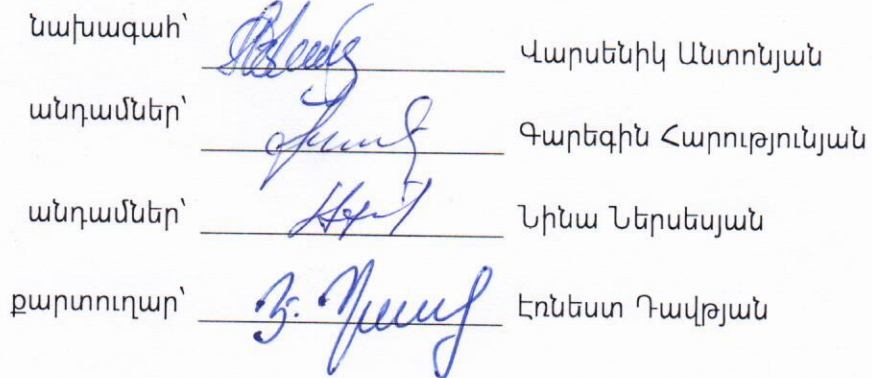 նախագահ՝ Վարսենիկ Անտոնյան
անդամներ՝ Գարեգին Հարությունյան
անդամներ՝ Նինա Ներսեսյան
քարտուղար՝ Էռնեստ Դավթյան